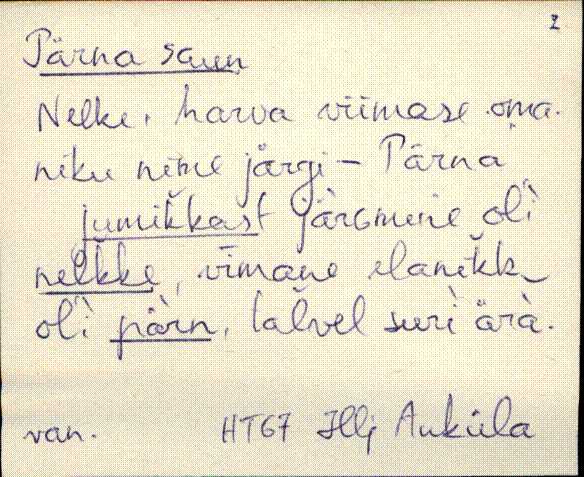 2
Pärna saun
Nelke, harva viimase oma-
niku nime järgi – Pärna
jumikkast järgmine oli
nelkke, vīmane elanikk
oli pärn, talvel suri ära.
van. HT67 Illj Auküla